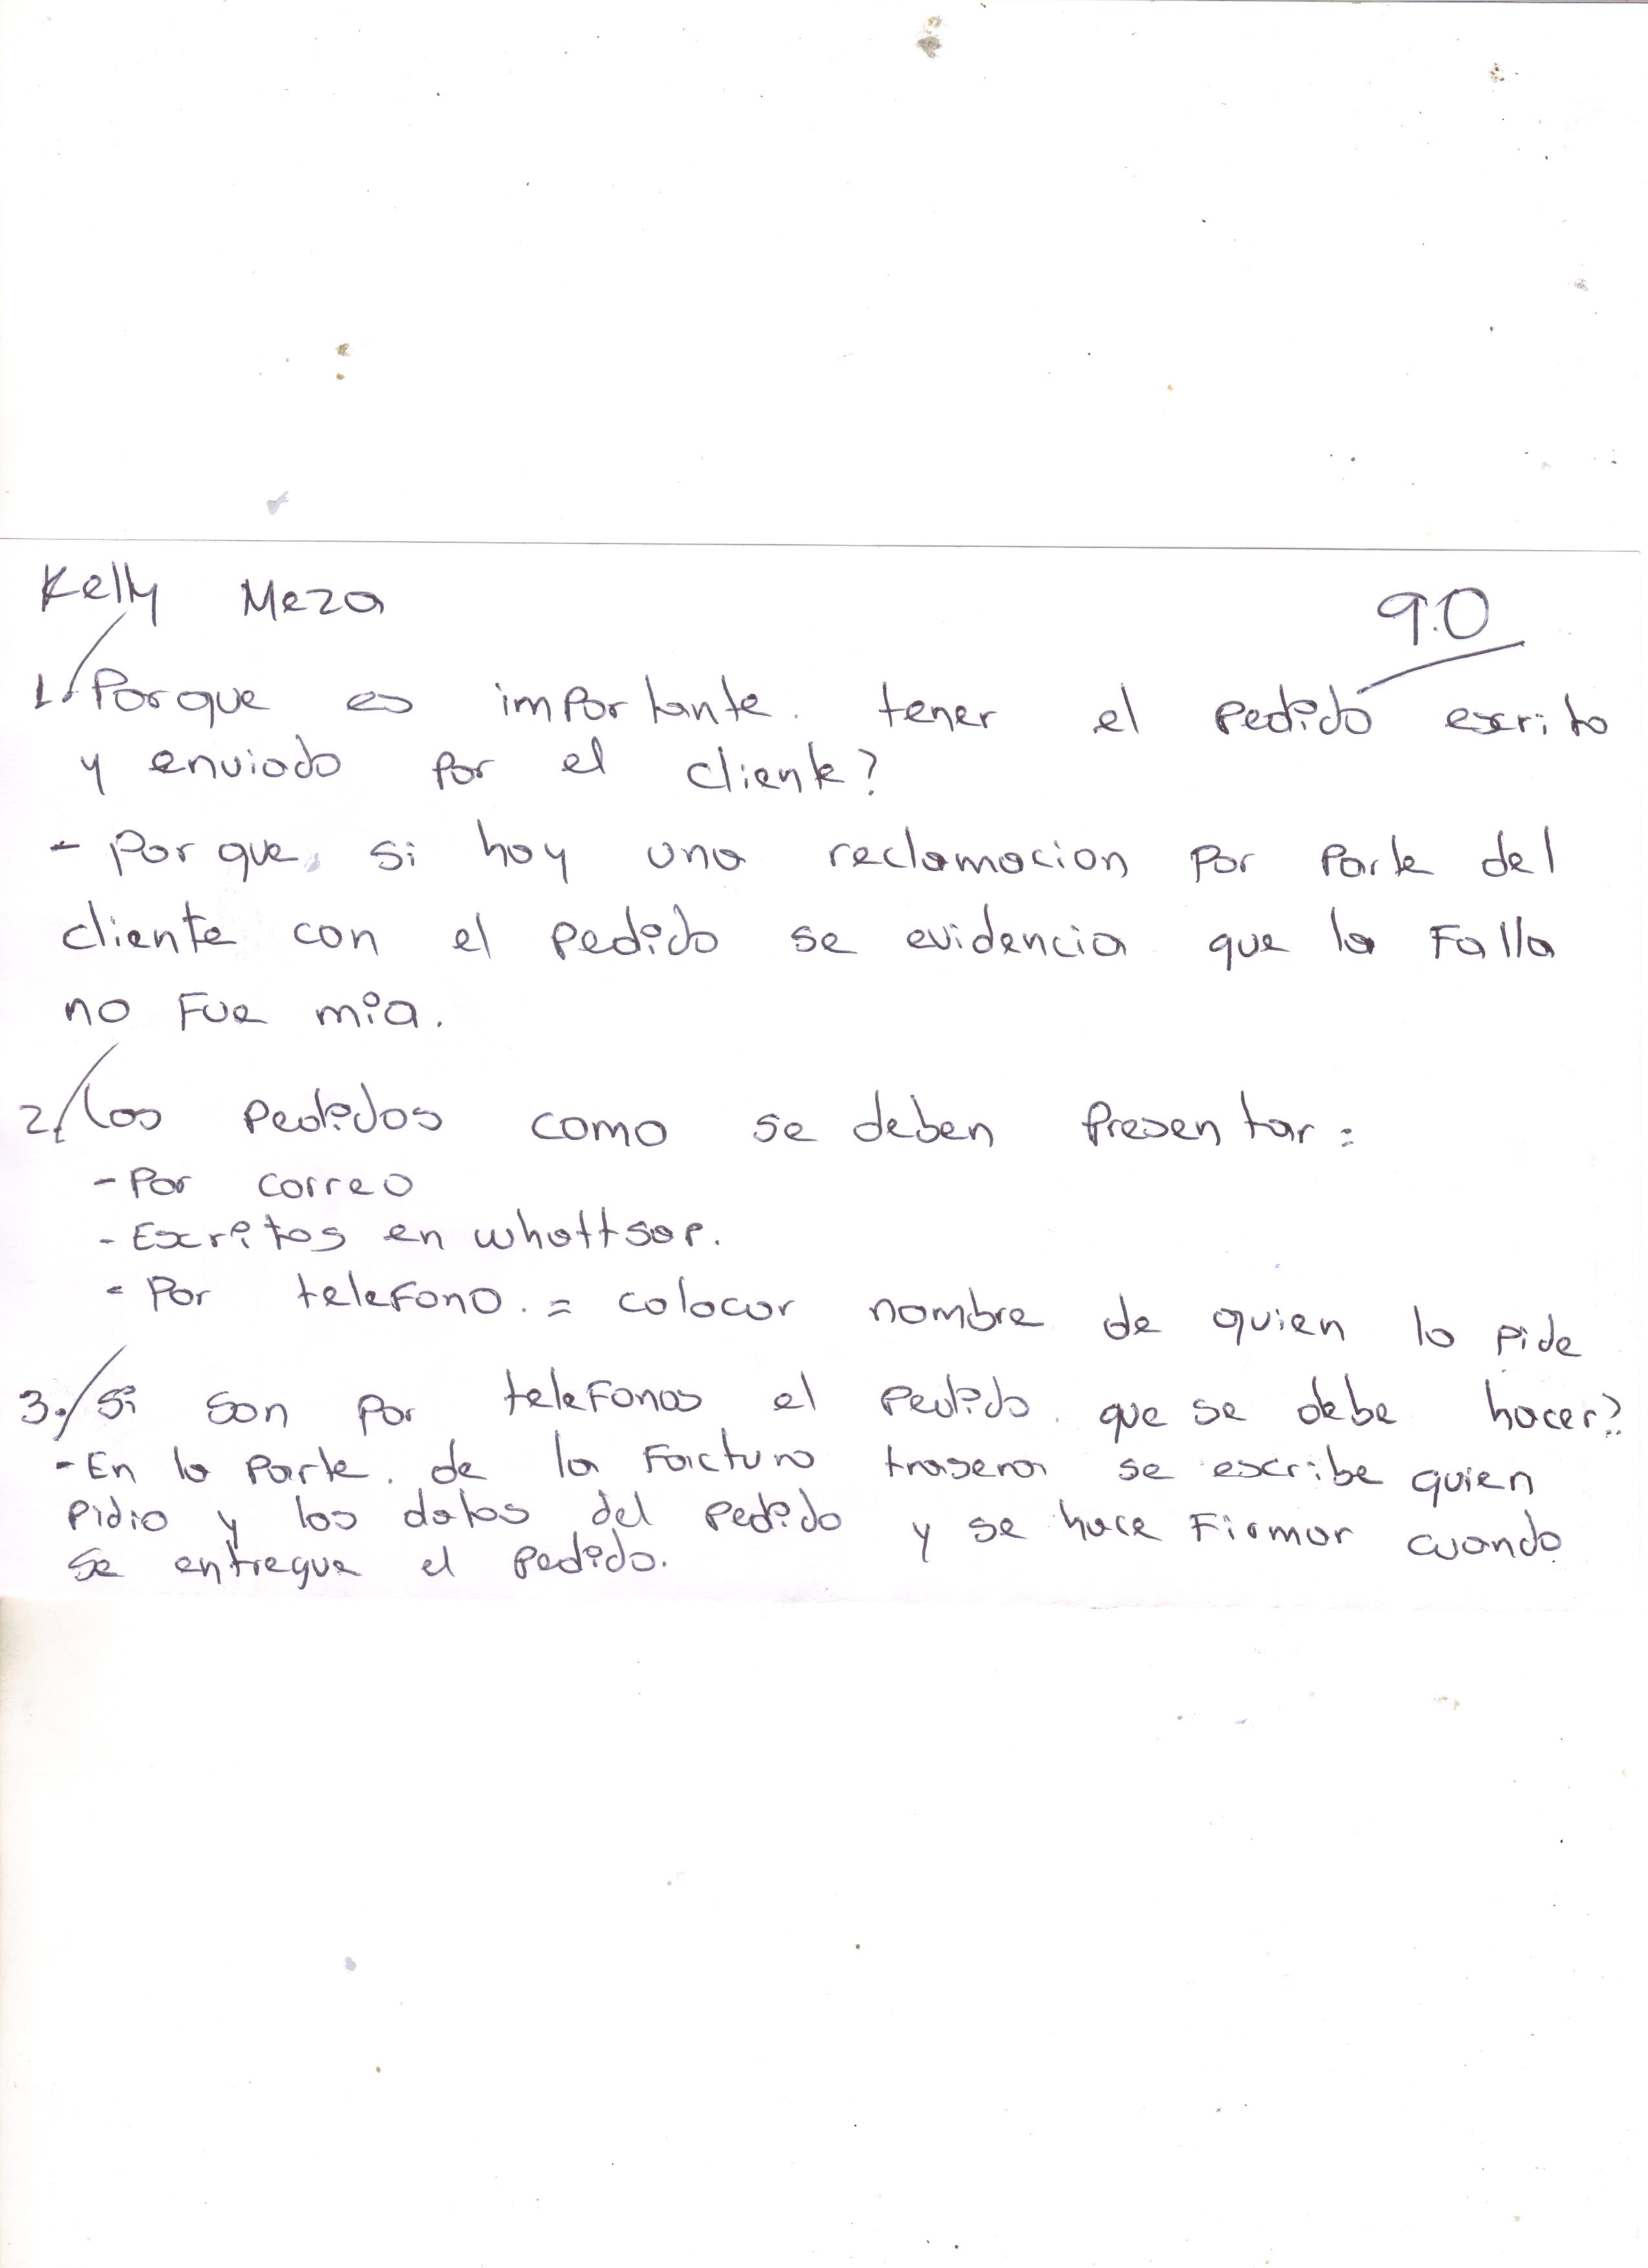 Kelly Meza 9.0
1. Porque es importante. tener el pedido escrito
y enviado por el cliente?
- Por que, si hay una reclamacion por parte del
cliente con el pedido se evidencia que la Falla
no Fue mia.
2. los pedidos como se deben presentar:
- Por correo
- Escritos en whattsap.
- Por teleFono. = colocar nombre de quien lo pide
3. si son por teleFonos el pedido. que se debe hacer?
- En la parte. de la Factura trasera se escribe quien
pidio y los datos del pedido y se hace Firmar cuando
se entregue el pedido.